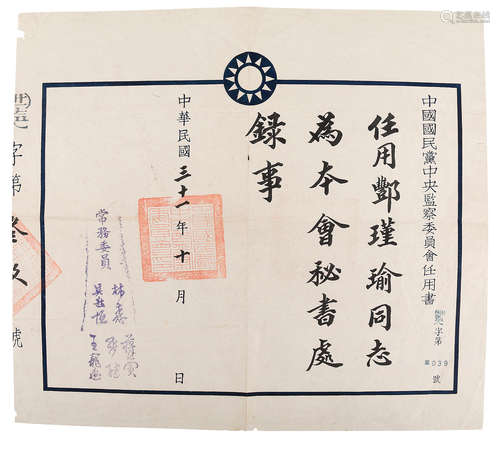 中國國民黨中央監察委員會任用書
字第
039
號
任用酆瑾瑜同志
為本會秘書處
錄事
中華民國三十一年十月 日
常務委員
林森
吳敬恆
張繼
王寵惠
字第
號